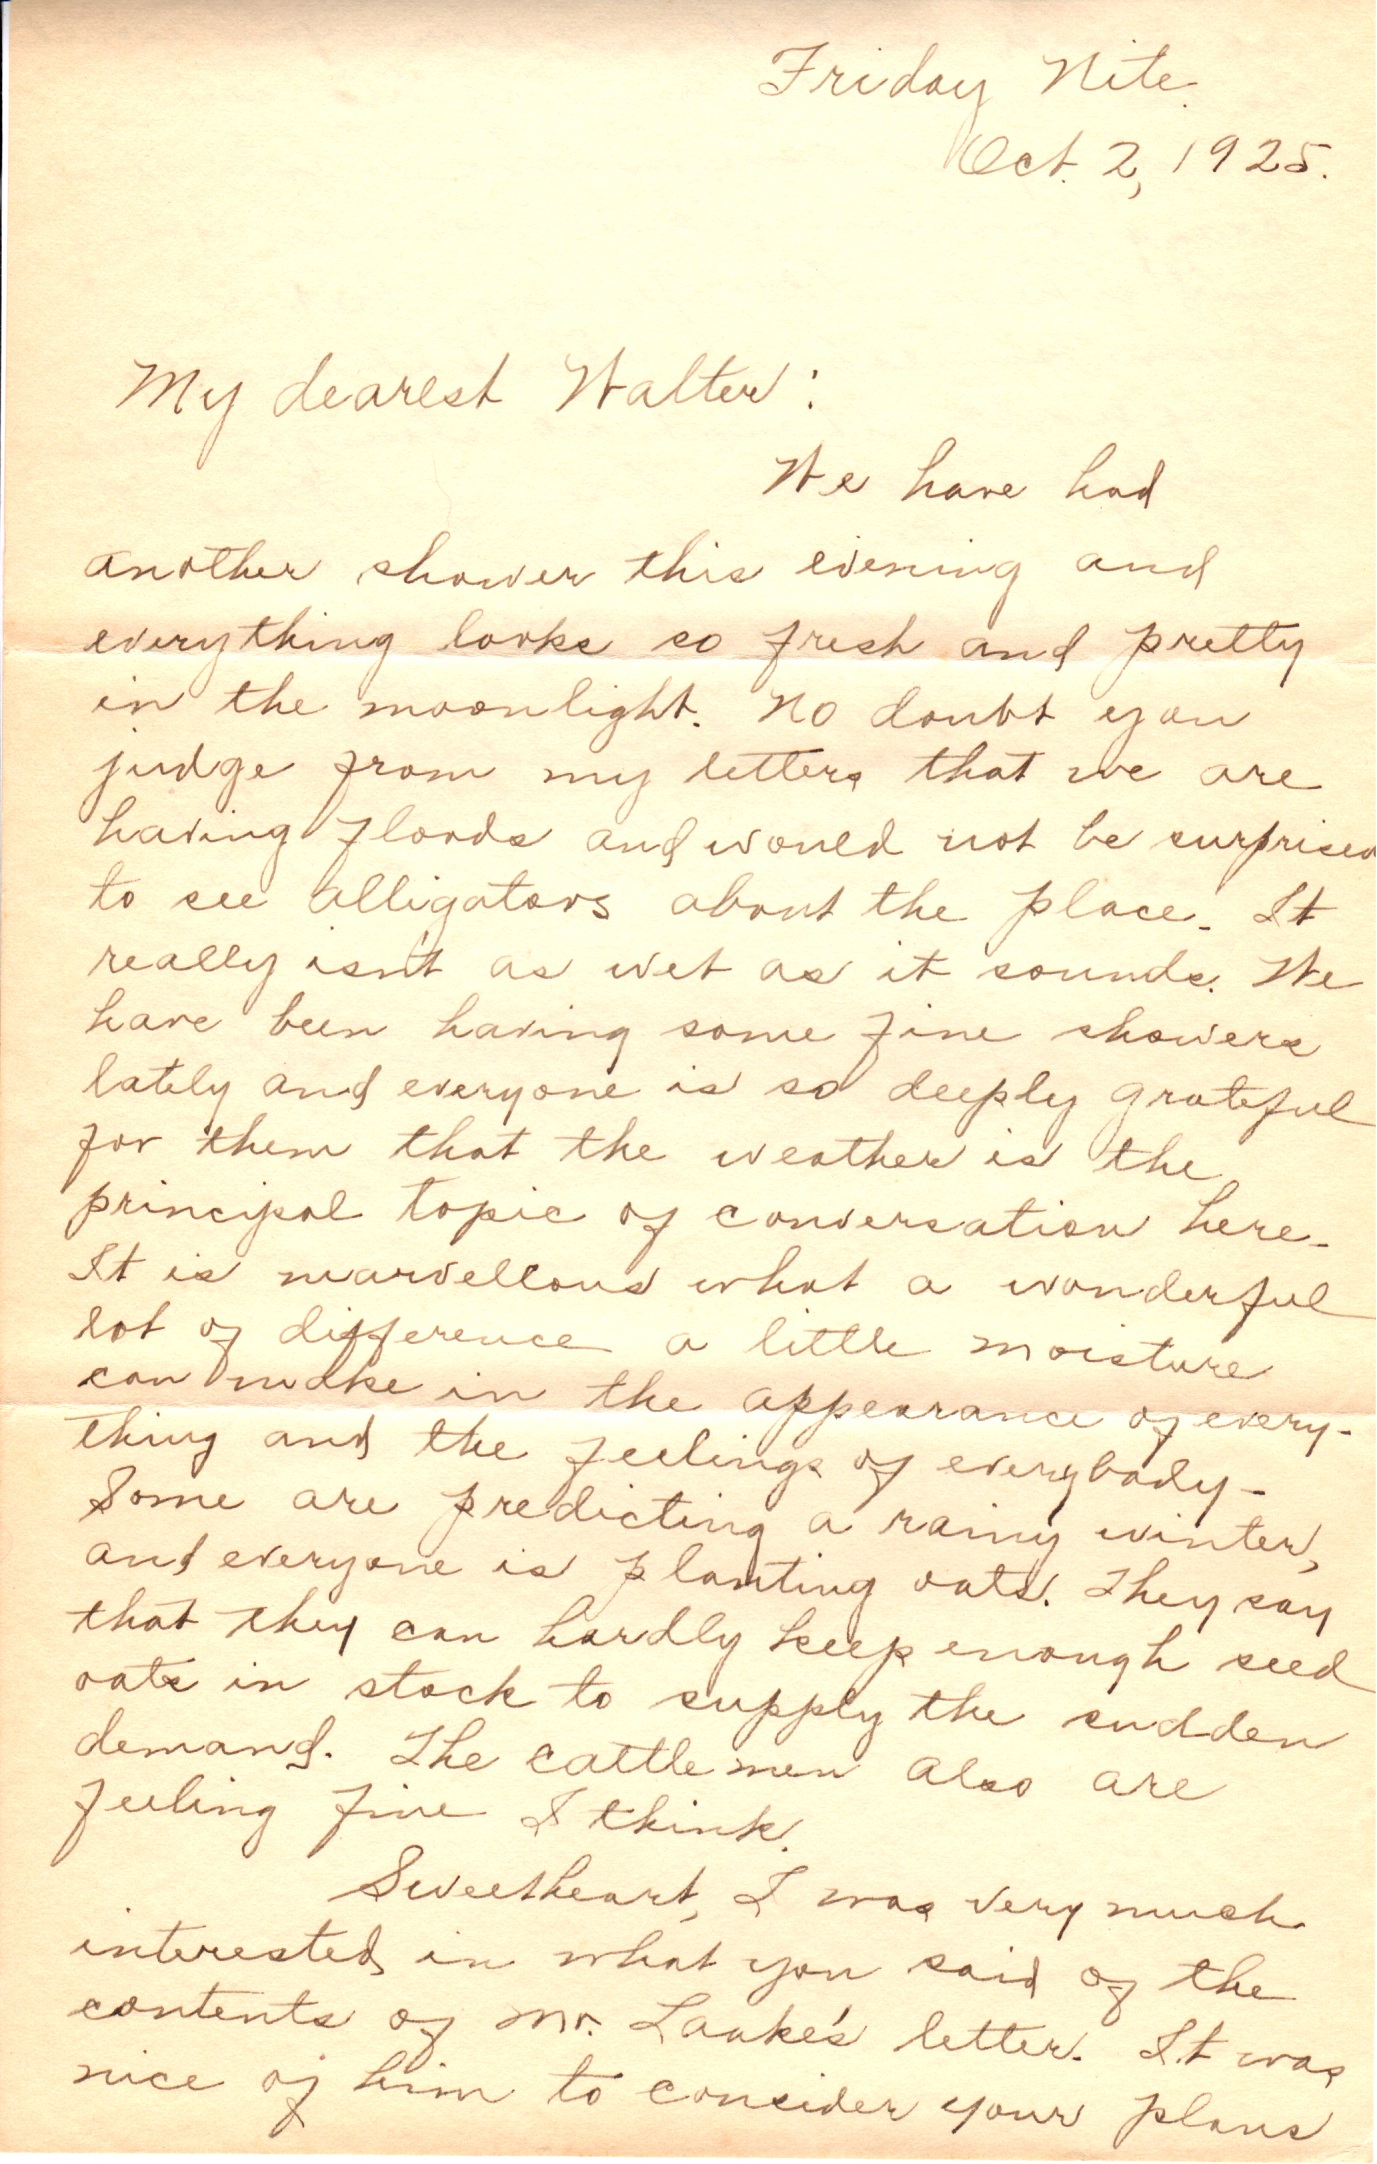 Friday Nite.
Oct. 2, 1925.
My dearest Walter:
We have had
another shower this evening and
everything looks so fresh and pretty
in the moonlight. No doubt you
judge from my letters that we are
having floods and would not be surprised
to see alligators about the place. It
really isn't as wet as it sounds. We
have been having some fine showers
lately and everyone is so deeply grateful
for them that the weather is the
principal topic of conversation here.
It is marvellous what a wonderful
lot of difference a little moisture
can make in the appearance of every-
thing and the feelings of everybody.
Some are predicting a rainy winter,
and everyone is planting oats. They say
that they can hardly keep enough seed
oats in stock to supply the sudden
demand. The cattle men also are
feeling fine I think.
Sweetheart, I was very much
interested in what you said of the
contents of Mr. Laake's letter. It was
nice of him to consider your plans